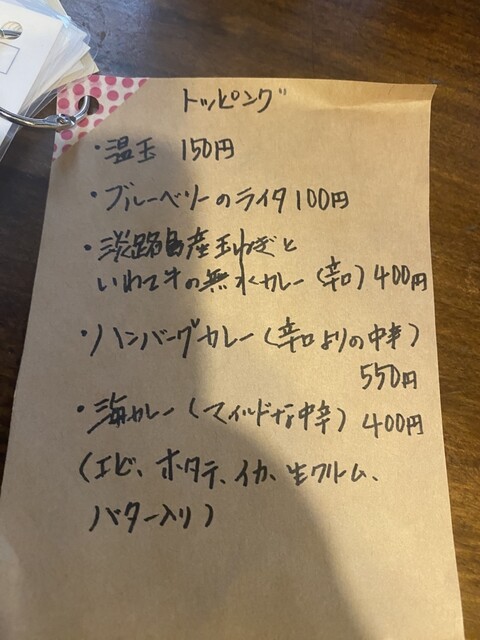 トッピング
・温玉 150円
・ブルーベリーのライタ100円
・淡路島産玉ねぎと
いわて牛の無水カレー(辛口)400円
・ハンバーグカレー(辛口よりの中辛)
550円
・海カレー(マイルドな中辛)400円
(エビ、ホタテ、イカ、生クリーム、
バター入り)